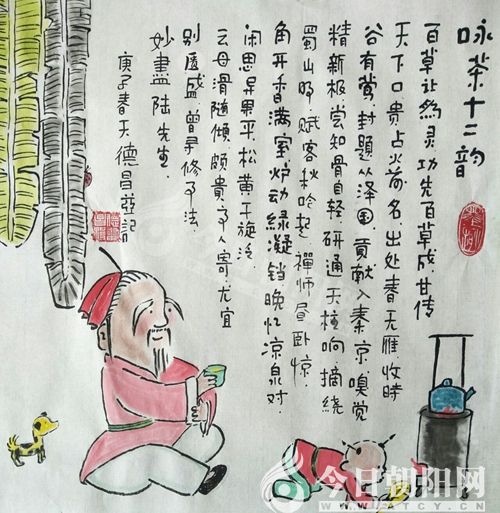 咏茶十二韵
百草让為灵功先百草成甘传
天下口贵占火前名出处春无雁收时
谷有莺.封题从泽国.贡献入秦京.嗅觉
精新极尝知骨自轻.研通天柱响.摘绕
蜀山明.赋客秋吟起.禪师昼卧惊.
角开香满室.炉动緑凝铛晚忆凉泉对.
闲思异果平.松黄干旋泛.
云母滑随倾.颇贵高人寄.尤宜
别匮盛.曾寻修事法.
妙盡陆先生
庚子春天德昌並记
今日朝阳网
WWW.LNTCY.CN